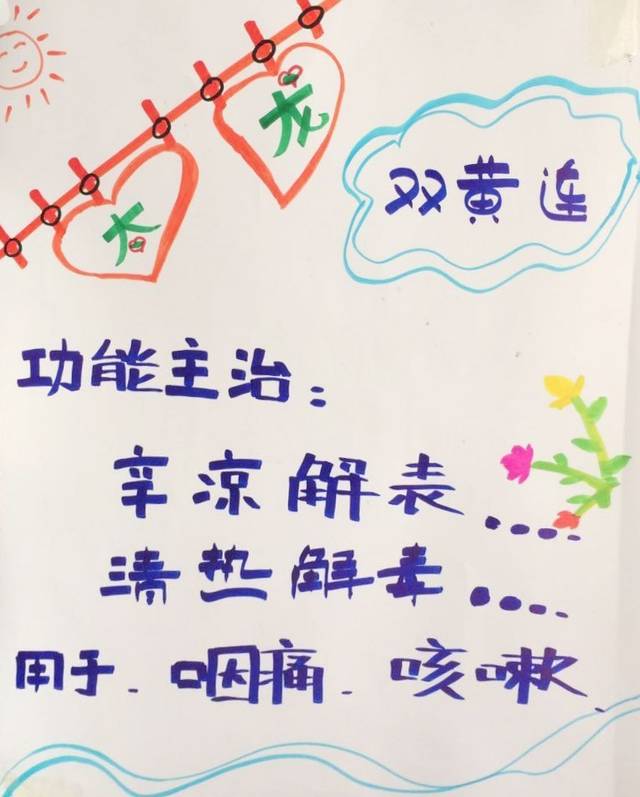 太龙
双黄连
功能主治：
辛凉解表....
清热解毒....
用于.咽痛.咳嗽